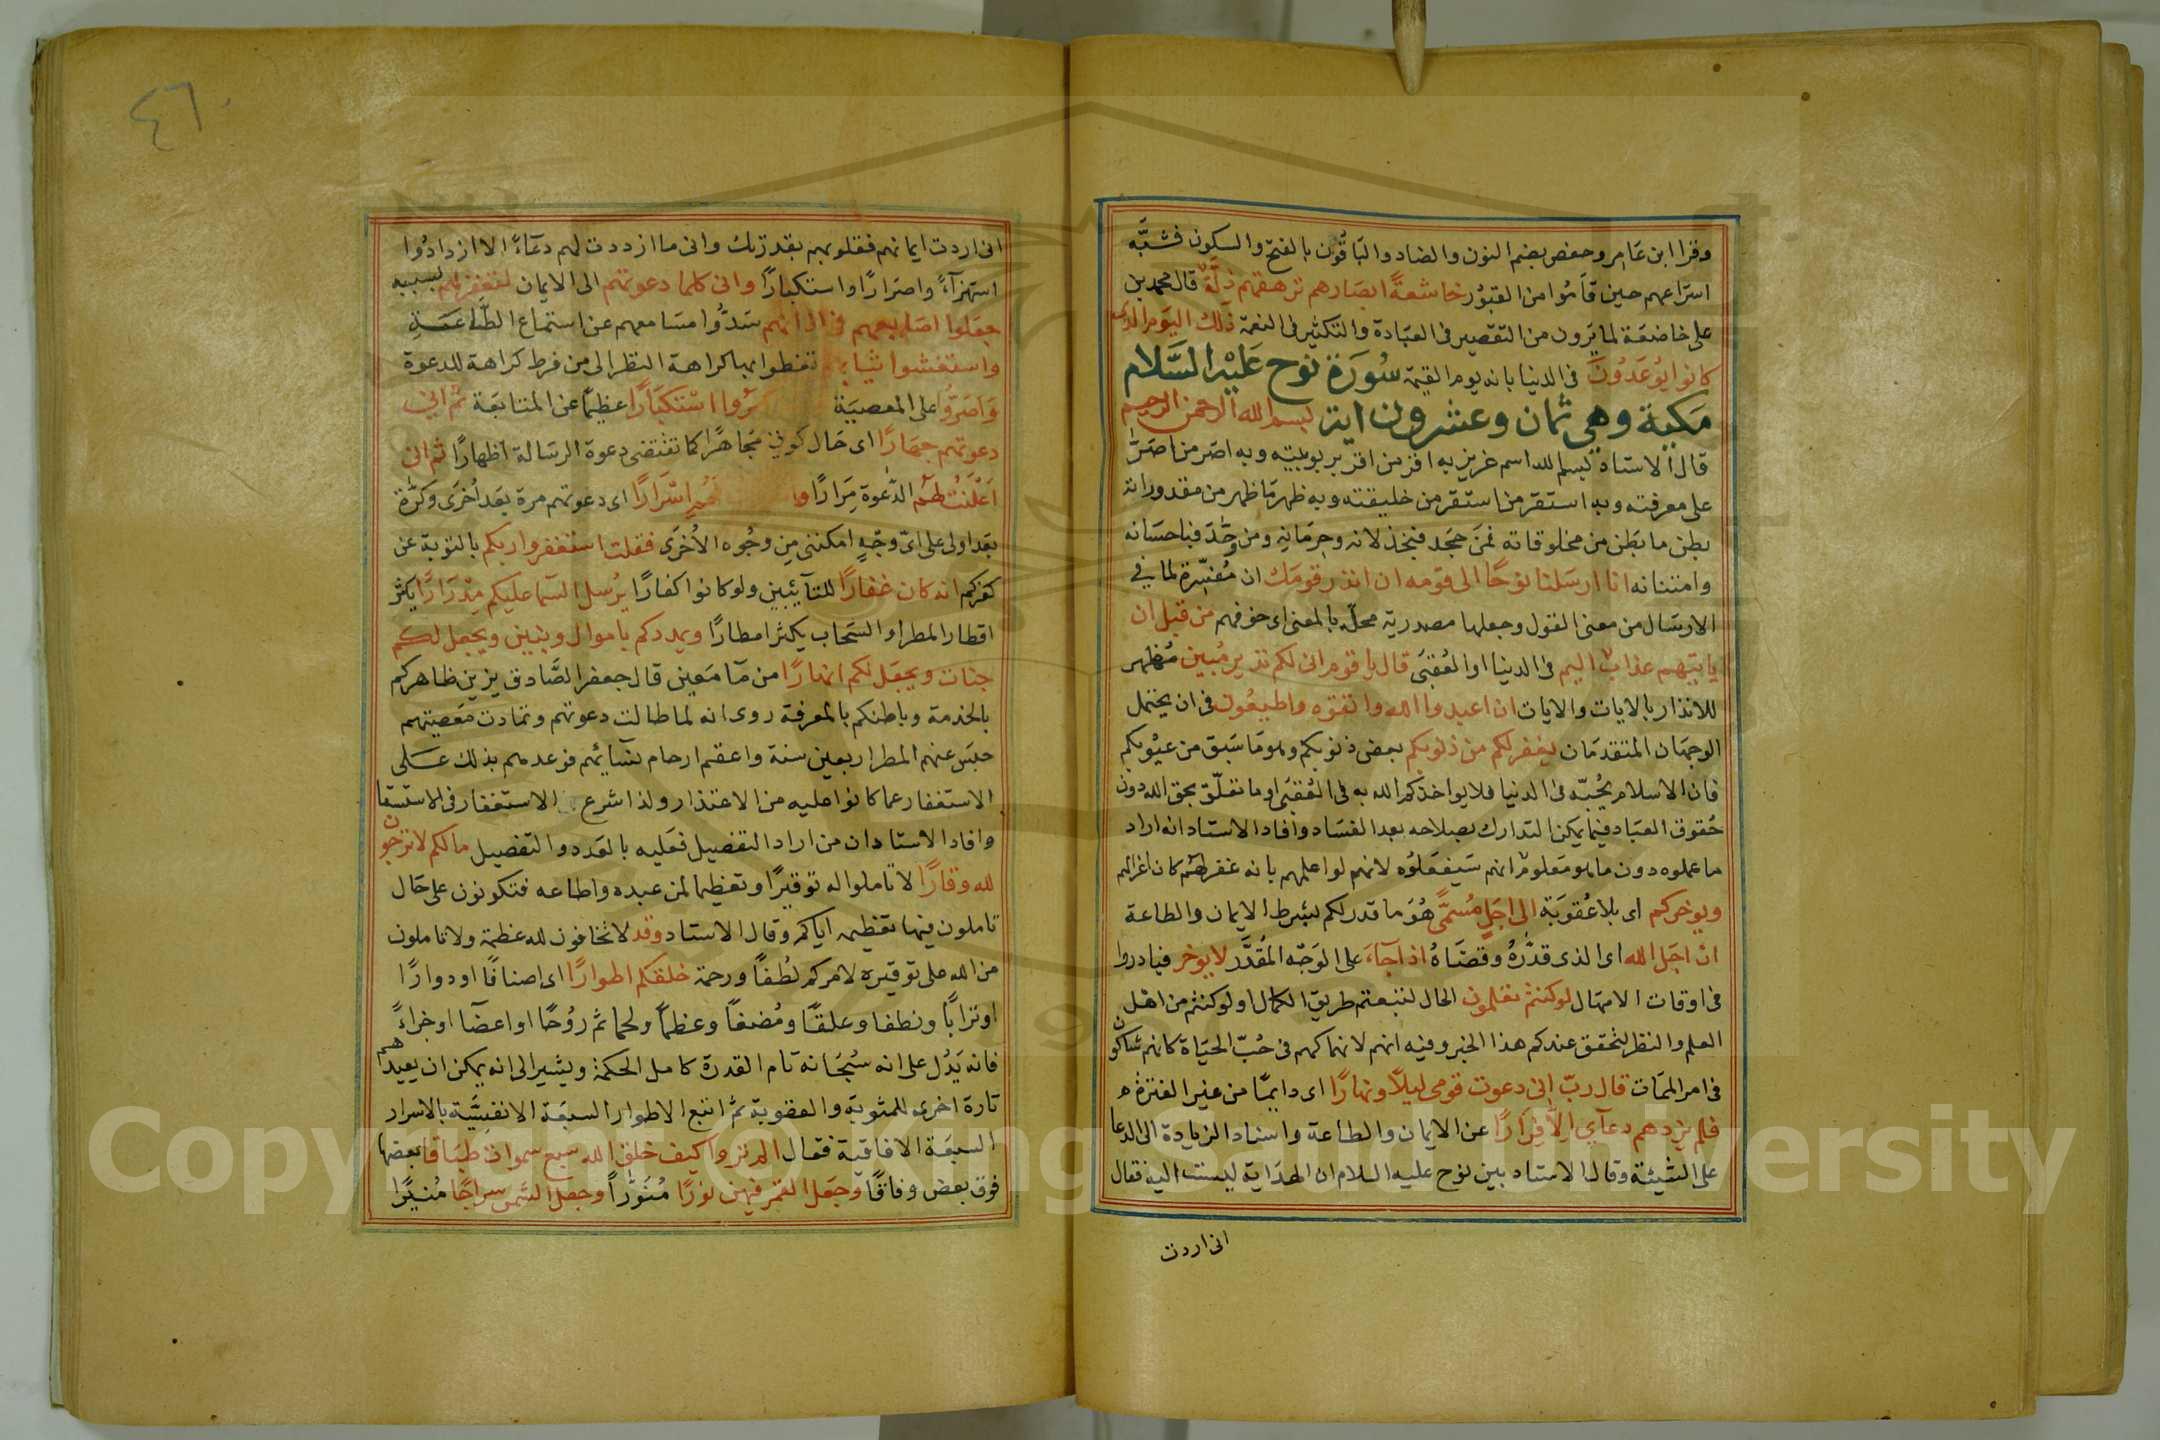 وقرا ابن عامر وحفص بضم النون والضاد والباقون بالفتح والسكون فشبه
اسراعهم حين قاموا من القبور خاشعة ابصارهم ترهقهم ذلة قال محمد بن
على خاضعة لما يرون من التقصير فى العبادة والتكثير فى النعمة ذلك اليوم الذى
كانوا يوعدون فى الدنيا بانه يوم القيمة سورة نوح عليه السلام
مكية وهى ثمان وعشرون اية بسم الله الرحمن الرحيم
قال الاستاد بسم الله اسم عزيز به اقر من اقر بربوبيته وبه اصر من اصر
على معرفته وبه استقر من استقر من خليقته وبه ظهر ما ظهر من مقدوراته
بطن ما بطن من مخلوقاته فمن جحد فبخذلانه وحرمانه ومن وحد فباحسانه
وامتنانه انا ارسلنا نوحا الى قومه ان انذر قومك ان مفسرة لما فى
الارسال من معنى القول وجعلها مصدرية محله بالمعنى اى خوفهم من قبل ان
ياتيهم عذاب اليم فى الدنيا او العقبى قال يا قوم انى لكم نذير مبين مظهر
للانذار بالايات والايات ان اعبدوا الله واتقوه واطيعون فى ان يحتمل
الوجهان المتقدمان يغفر لكم من ذنوبكم بعض ذنوبكم وهو ما سبق من عيوبكم
فان الاسلام يجبه فى الدنيا فلا يواخذكم الله به فى العقبى او ما تعلق بحق الله دون
حقوق العباد فيما يمكن التدارك بصلاحه بعد الفساد وافاد الاستاد انه اراد
ما عملوه دون ما هو معلوم انهم سيفعلوه لانهم لو اعلمهم بانه غفر لهم كان اغرا لهم
ويوخركم اى بلا عقوبة الى اجل مسمى هو ما قدر لكم بشرط الايمان والطاعة
ان اجل الله اى الذى قدره وقضاه اذا جآء على الوجه المقدر لا يوخر فبادروا
فى اوقات الامهال لو كنتم تعلمون الحال لتبعتم طريق الكمال او لو كنتم من اهل
العلم والنظر لتحقق عندكم هذا الخبر وفيه انهم لانهماكهم فى حب الحياة كانهم شاكون
فى امر الممات قال رب انى دعوت قومى ليلا ونهارا اى دايما من غير الفترة
فلم يزدهم دعآى الا فرارا عن الايمان والطاعة واسناد الزيادة الى الدعا
على الشيئة وقال الاستاد بين نوح عليه السلام ان الهداية ليست اليه فقال
انى اردت
٤٦٠
انى اردت ايمانهم فقلوبهم بقدرتك وانى ما ازددت لهم دعآء الا ازدادوا
استهزآء واصرارا واستكبارا وانى كلما دعوتهم الى الايمان لتغفر لهم بسببه
جعلوا اصابعهم فى اذانهم سدوا مسامعهم عن استماع الطاعة
واستغشوا ثيابهم تغطوا بها كراهة النظر الى من فرط كراهة للدعوة
واصروا على المعصية استكبارا عظيما عن المتابعة ثم انى
دعوتهم جهارا اى حال كونى مجاهرا كما تقتضى دعوة الرسالة اظهارا ثم انى
اعلنت لهم الدعوة مرارا اسرارا اى دعوتهم مرة بعد اخرى وكرة
بعد اولى على اى وجه امكننى من وجوه الاخرى فقلت استغفروا ربكم بالتوبة عن
كفركم انه كان غفارا للتآئبين ولو كانوا كفارا يرسل السما عليكم مدرارا يكثر
اقطار المطر او السحاب يكثر امطارا ويمددكم باموال وبنين ويجعل لكم
جنات ويجعل لكم انهارا من مآ معين قال جعفر الصادق يزين ظاهركم
بالخدمة وباطنكم بالمعرفة روى انه لما طالت دعوتهم وتمادت معصيتهم
حبس عنهم المطر اربعين سنة واعقم ارحام نسايهم فوعدهم بذلك على
الاستغفار عما كانوا عليه من الاعتذار ولذا شرع الاستغفار فى الاستسقا
وافاد الاستاد ان من اراد التفضيل فعليه بالعدد والتفصيل مالكم لا ترجون
لله وقارا لا تاملوا له توقيرا وتعظيما لمن عبده واطاعه فتكونون على حال
تاملون فيها تعظيمه اياكم وقال الاستاد وقد لا تخافون لله عظمة ولا تاملون
من الله على توقيره لامركم لطفا ورحمة خلقكم اطوارا اى اصنافا او دوارا
او ترابا ونطفا وعلقا ومضغا وعظما ولحما ثم روحا او اعضآ اوخراء
فانه يدل على انه سبحانه تام القدرة كامل الحكمة ويشير الى انه يمكن ان يعيدهم
تارة اخرى للمثوبة والعقوبة ثم اتبع الاطوار السبعة الانفسية بالاسرار
السبعة الافاقية فقال الم تروا كيف خلق الله سبع سموات طباقا بعضها
فوق بعض وفاقا وجعل القمر فيهن نورا منورا وجعل الشمس سراجا منيرا
Copyright © King Saud University